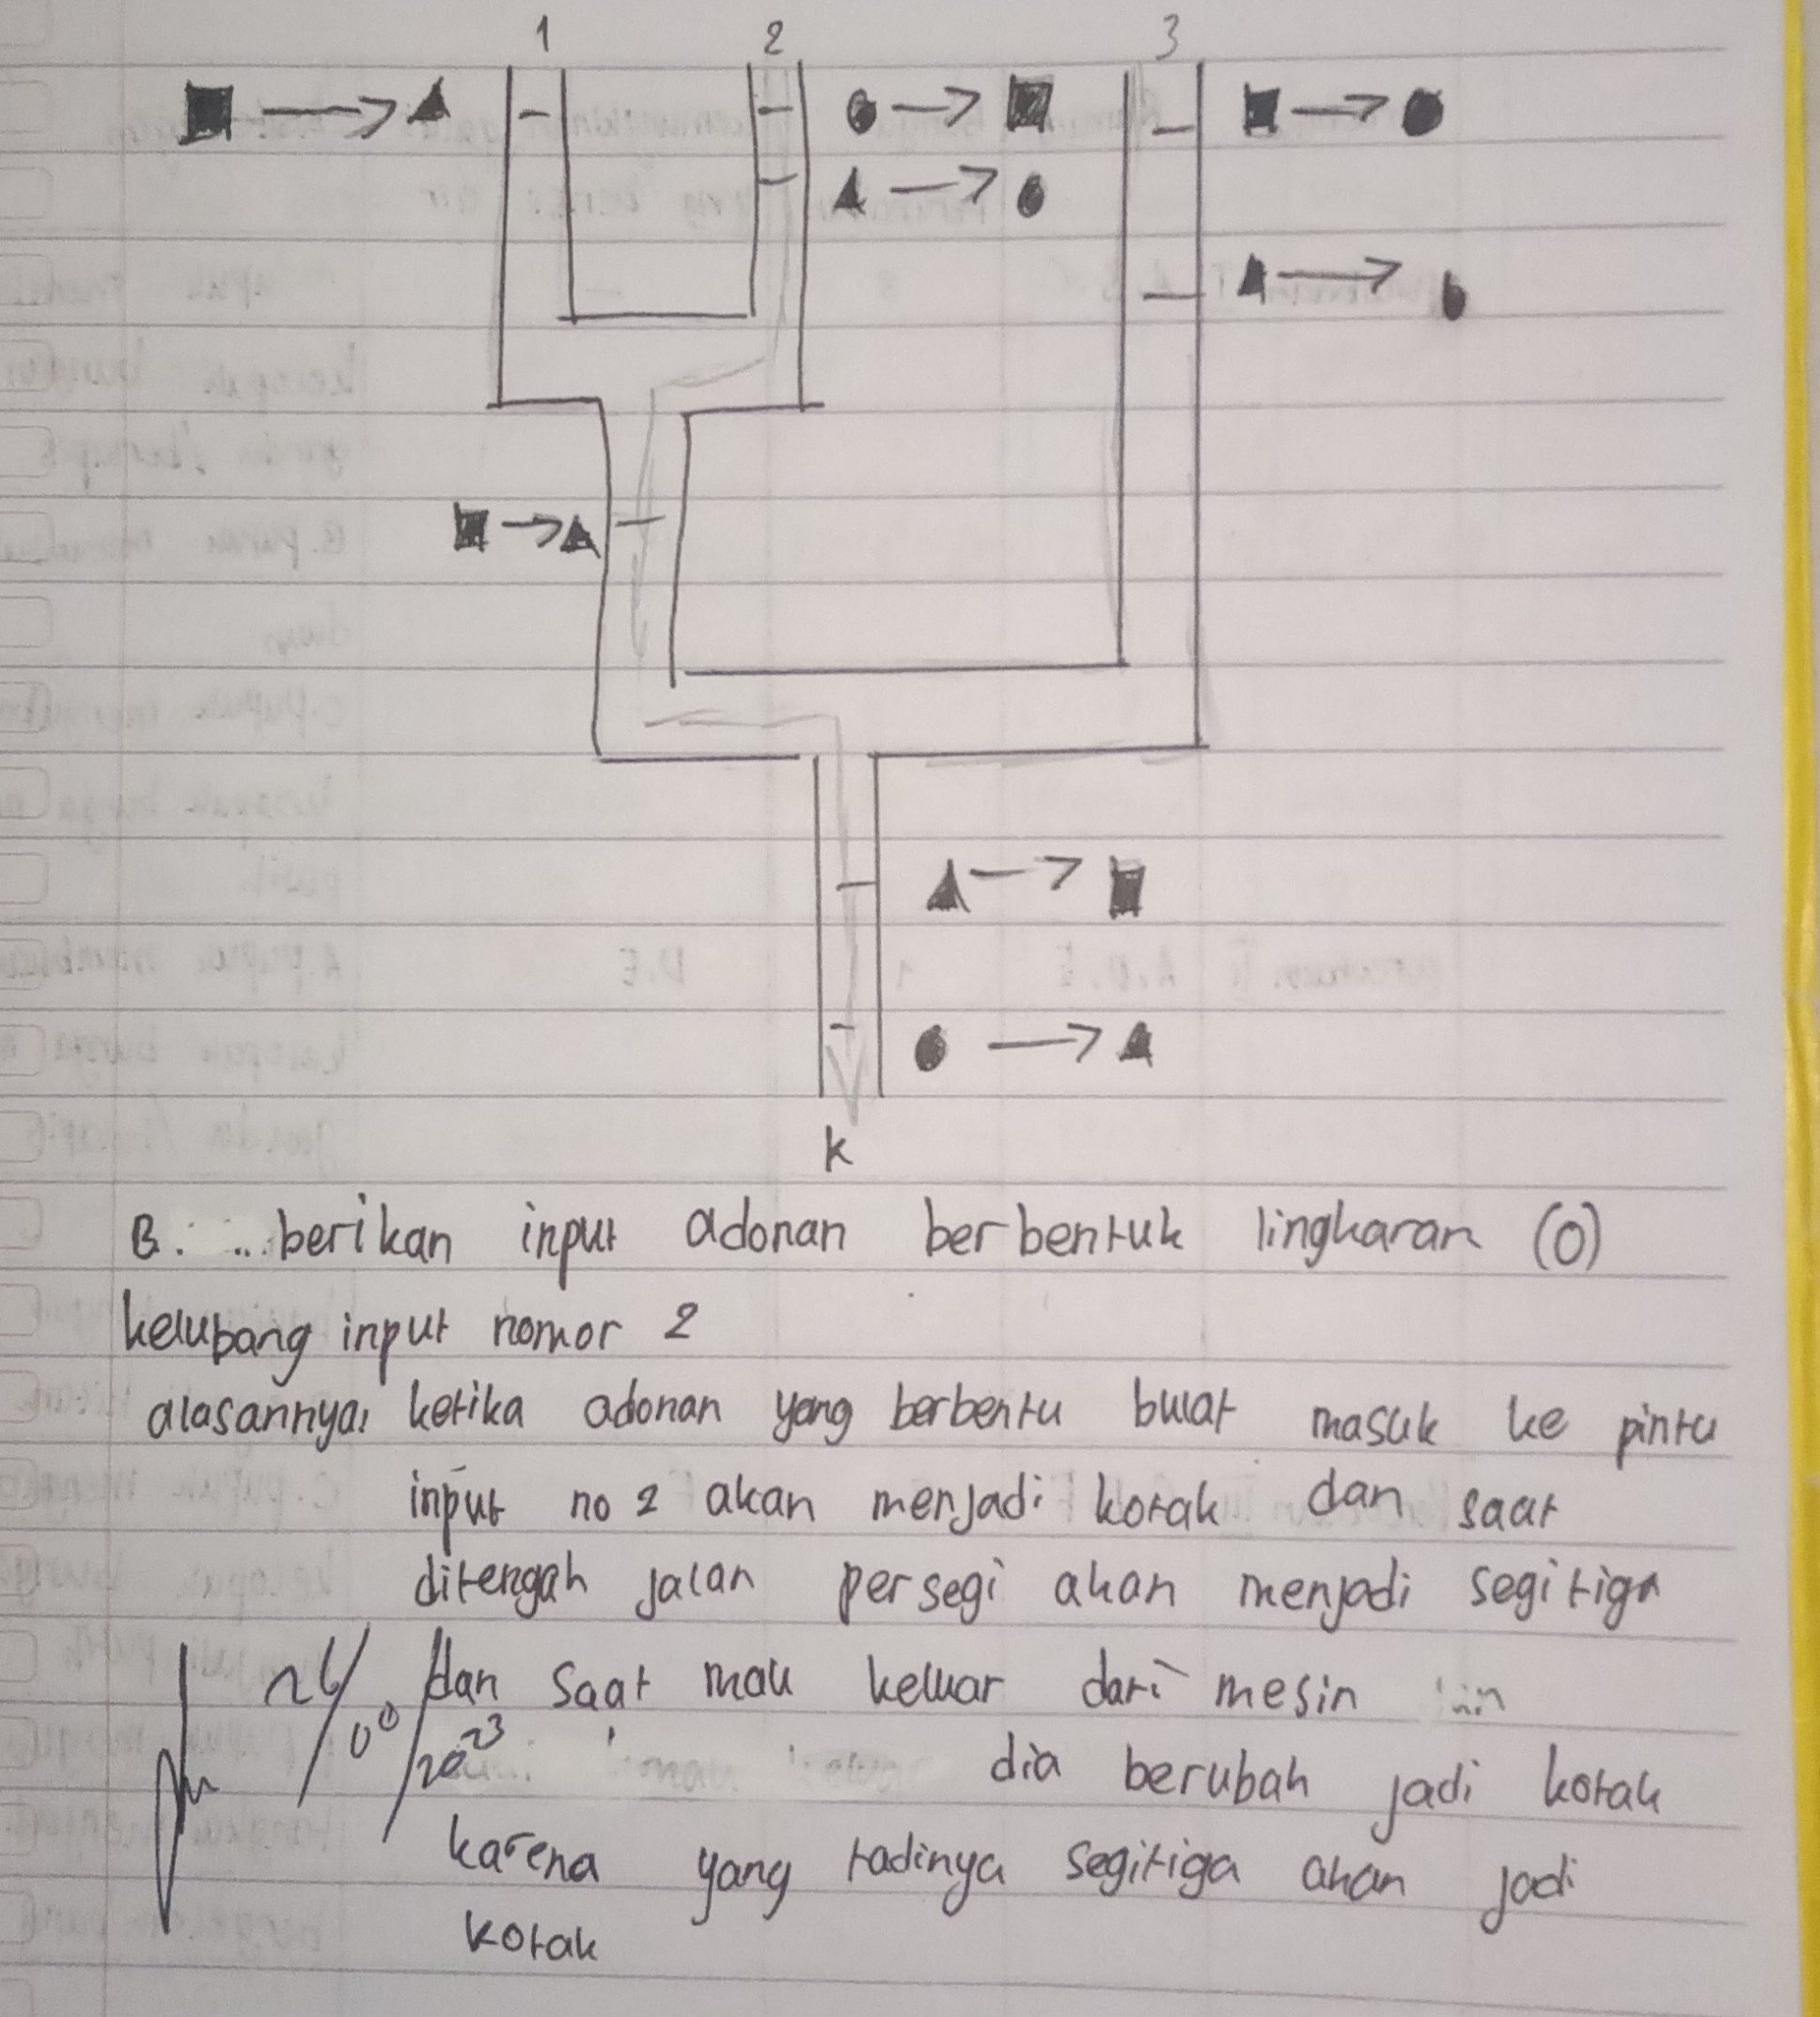 1 2 3
k
B. berikan input adonan berbentuk lingkaran (O)
kelubang input nomor 2
alasannya, ketika adonan yang berbentu bulat masuk ke pintu
input no 2 akan menjadi kotak dan saat
ditengah jalan persegi akan menjadi segitiga
dan saat mau keluar dari mesin
dia berubah jadi kotak
karena yang tadinya segitiga akan jadi
kotak